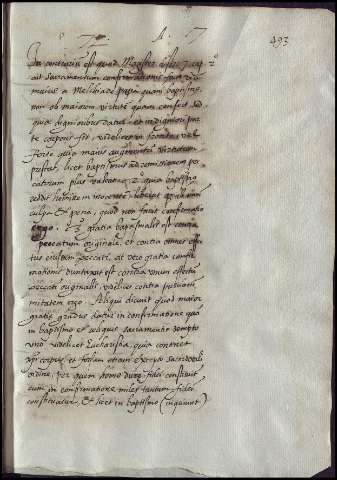 7. A. 7 493
In contrarium est quod Magister dist. 7. cap. 2º
ait sacramentum confirmationis
maius a Melchiade papa quam baptismus,
non ob maiorem virtutem quam confert sed
quia dignioribus datur et in digniori par
te corporis fit, videlicet in fronte, vel
forte quia maius augmentum virtutum
prestat, licet baptismus ad remissionem pe
catorum plus valeat. 2º quia baptismus
reddit hominem
culpa et pena, quod non facit confirmatio
ergo. 3º gratia baptismalis est contra
peccatum originale, et contra omnes effec
tus eiusdem peccati, at vero gratia confir
mationis duntaxat est contra unum effectum
peccati originalis, videlicet contra infirmi
mitatem ergo. Aliqui dicunt quod maior
gratiæ gradus datur in confirmatione quam
in baptismo et reliquis sacramentis dempto
uno videlicet Eucharistia, quia continet
xpi corpus, et forsan etiam excepto sacerdotali
ordine, per quem homo dux fidei constituit
cum in confirmatione miles tantum fidei
constituatur. Et licet in baptismo (inquiunt)